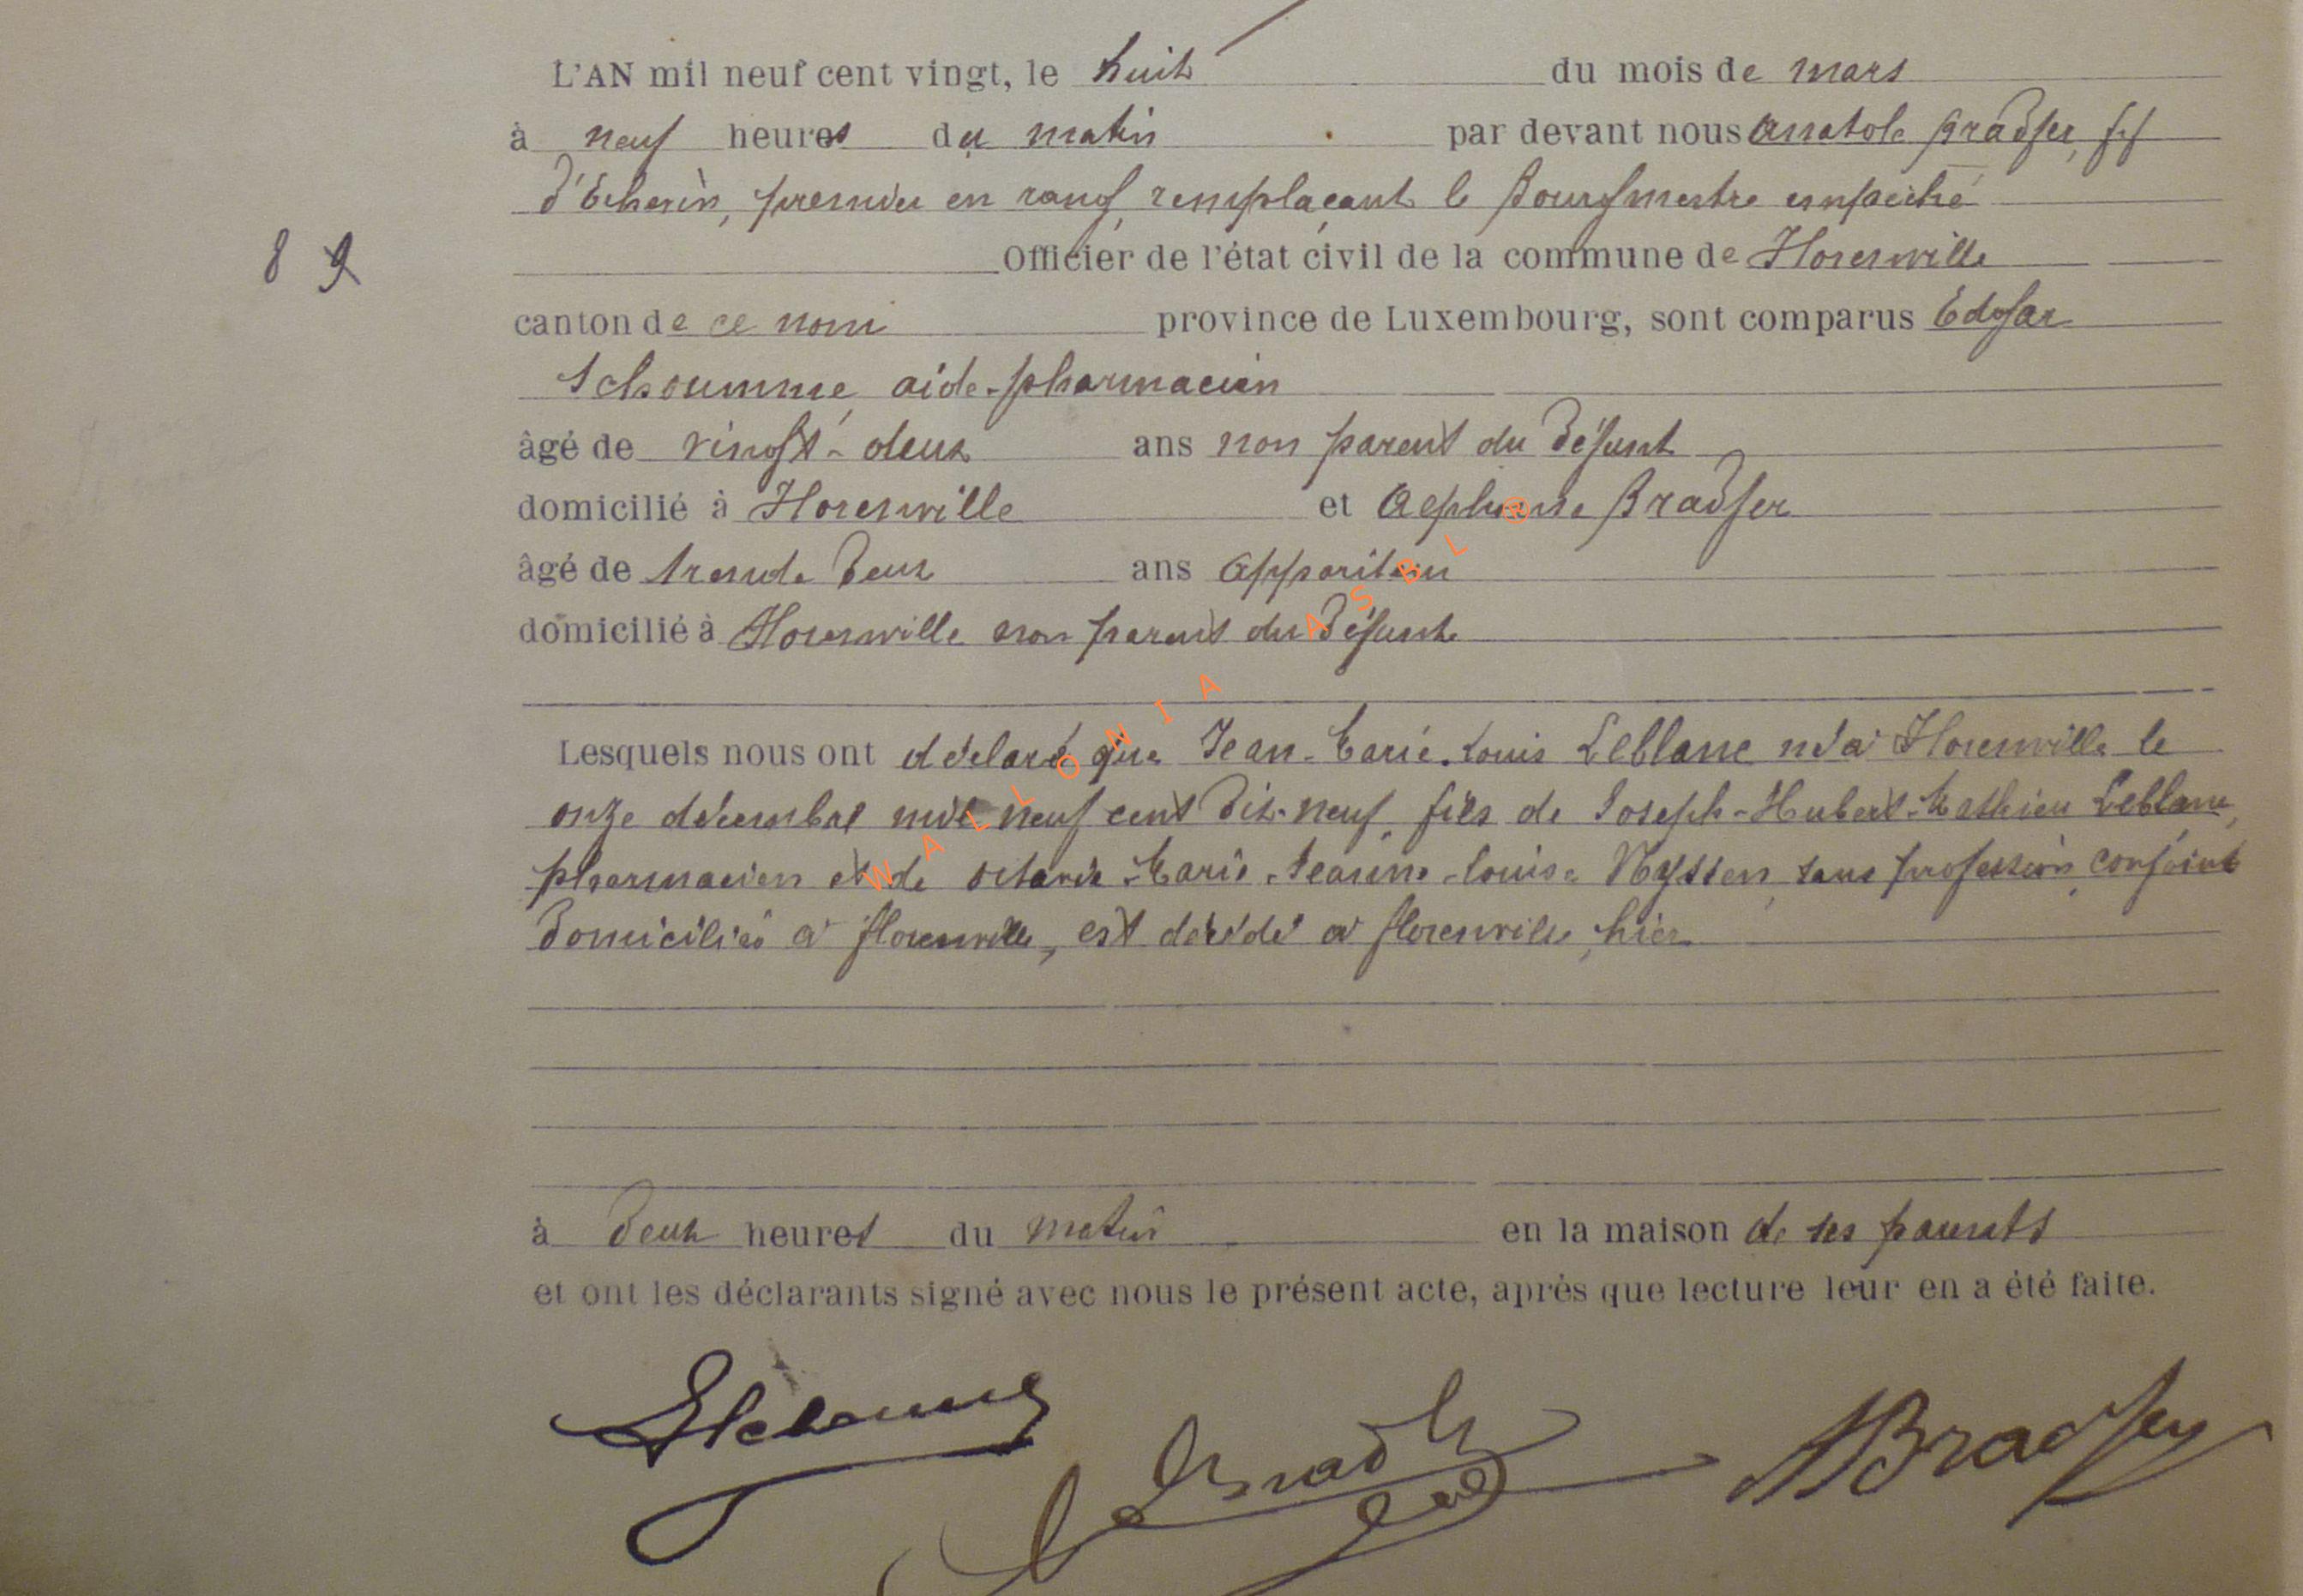 L'AN mil neuf cent vingt, le huit du mois de mars
à neuf heures du matin par devant nous Anatole Bradfer, ff
d'Échevin, premier en rang, remplaçant le Bourgmestre empêché
Officier de l'état civil de la commune de Florenville
8 9
canton de ce nom province de Luxembourg, sont comparus Edgar
Schoumme, aide-pharmacien
âgé de vingt-deux ans non parent du défunt
domicilié à Florenville et Alphonse Bradfer
âgé de trente deux ans appariteur
domicilié à Florenville non parent du défunt
Lesquels nous ont déclaré que Jean-Marie-Louis Leblanc né à Florenville le
onze décembre mil neuf cent dix-neuf, fils de Joseph-Hubert-Mathieu Leblanc,
pharmacien et de Octavie-Marie-Jeanne-Louise Nyssen, sans profession, conjoints
domiciliés à Florenville, est décédé à Florenville, hier
à deux heures du matin en la maison de ses parents
et ont les déclarants signé avec nous le présent acte, après que lecture leur en a été faite.
ABradfer
WALLONIA ASBL ®